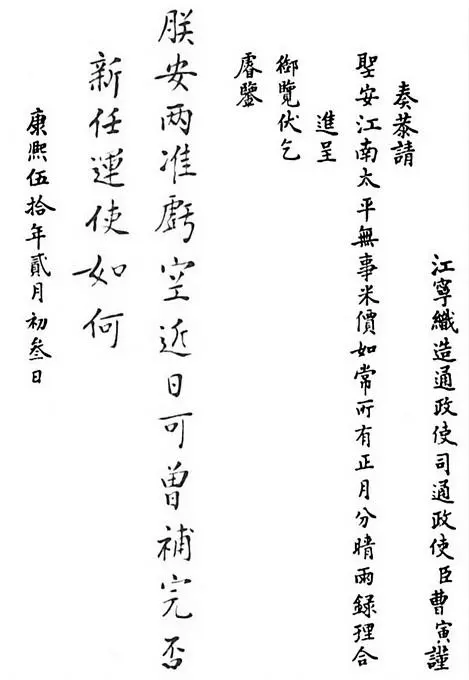 江寧織造通政使司通政使臣曹寅謹
奏恭請
聖安江南太平無事米價如常所有正月分晴雨録理合
進呈
御覽伏乞
睿鑒
朕安两淮虧空近日可曽補完否
新任運使如何
康熙伍拾年貳月初叁日